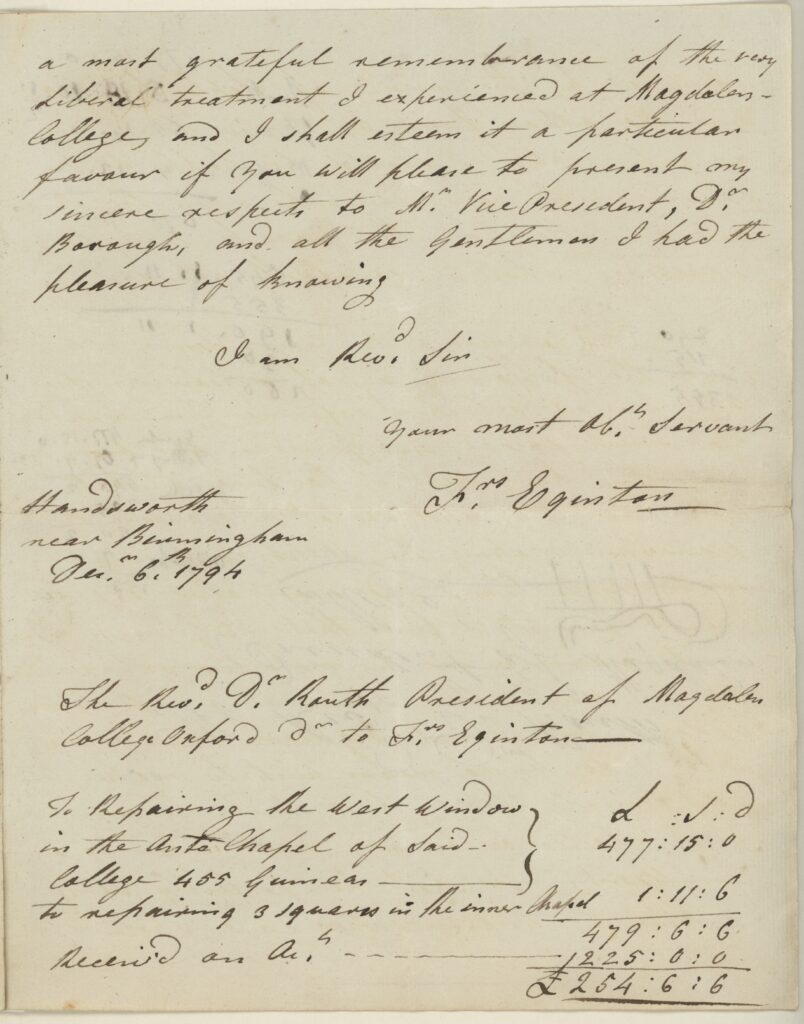 a most grateful remembrance of the very
liberal treatment I experienced at Magdalen-
College, and I shall esteem it a particular
favour if you will please to present my
sincere respects to Mr. Vice President, Dr.
Borough, and all the Gentlemen I had the
pleasure of knowing
I am Revd. Sir
Your most Obt. Servant
Frs. Eginton
Handsworth
near Birmingham
Decr. 6th. 1794
The Revd. Dr. Routh President of Magdalen
College Oxford Dr to Frs. Eginton
To Repairing the West Window
in the Ante Chapel of Said-
College 455 Guineas
£ : s : d
477 : 15 : 0
to repairing 3 squares in the inner Chapel 1 : 11 : 6
479 : 6 : 6
Receiv'd on Act. 225 : 0 : 0
£ 254 : 6 : 6